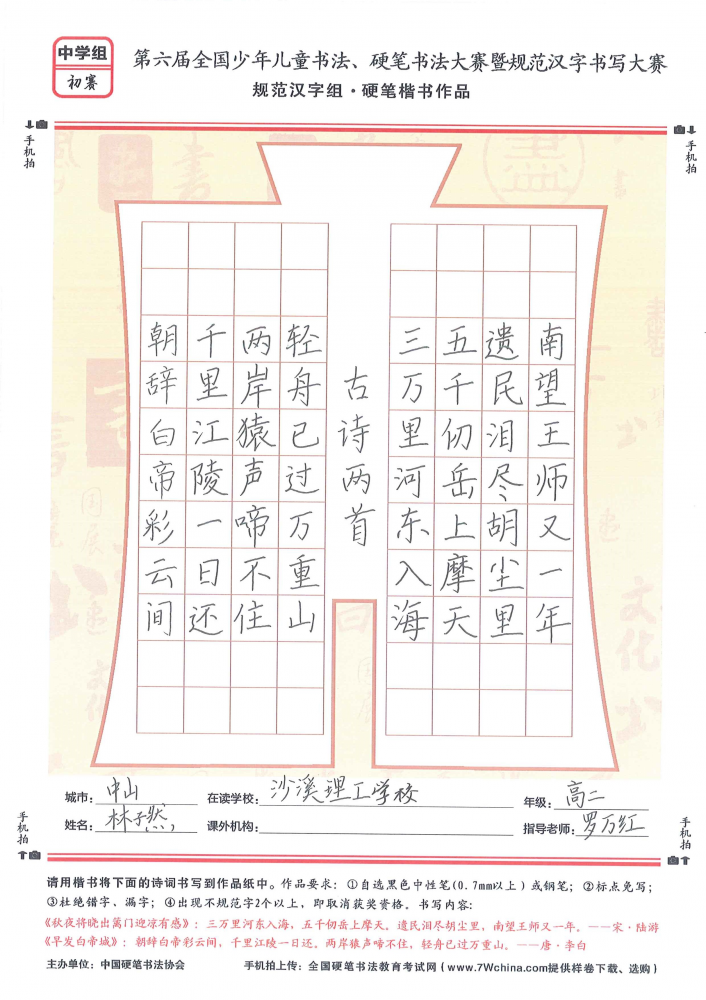 中学组
初赛
第六届全国少年儿童书法、硬笔书法大赛暨规范汉字书写大赛
规范汉字组·硬笔楷书作品
手机拍
手机拍
朝辞白帝彩云间
千里江陵一日还
两岸猿声啼不住
轻舟已过万重山
古诗两首
三万里河东入海
五千仞岳上摩天
遗民泪尽胡尘里
南望王师又一年
城市:中山 在读学校:沙溪理工学校 年级:高二
姓名:林子然 课外机构: 指导老师:罗万红
手机拍
手机拍
请用楷书将下面的诗词书写到作品纸中。作品要求:①自选黑色中性笔(0.7mm以上)或钢笔;②标点免写;
③杜绝错字、漏字;④出现不规范字2个以上,即取消获奖资格。书写内容:
《秋夜将晓出篱门迎凉有感》:三万里河东入海,五千仞岳上摩天。遗民泪尽胡尘里,南望王师又一年。——宋·陆游
《早发白帝城》:朝辞白帝彩云间,千里江陵一日还。两岸猿声啼不住,轻舟已过万重山。——唐·李白
主办单位:中国硬笔书法协会 手机拍上传:全国硬笔书法教育考试网(www.7Wchina.com提供样卷下载、选购)